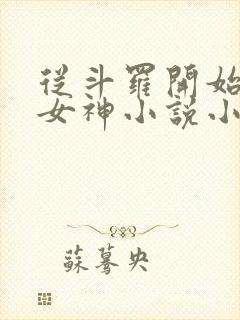 從斗羅開始
女神小說小
蘇驀央